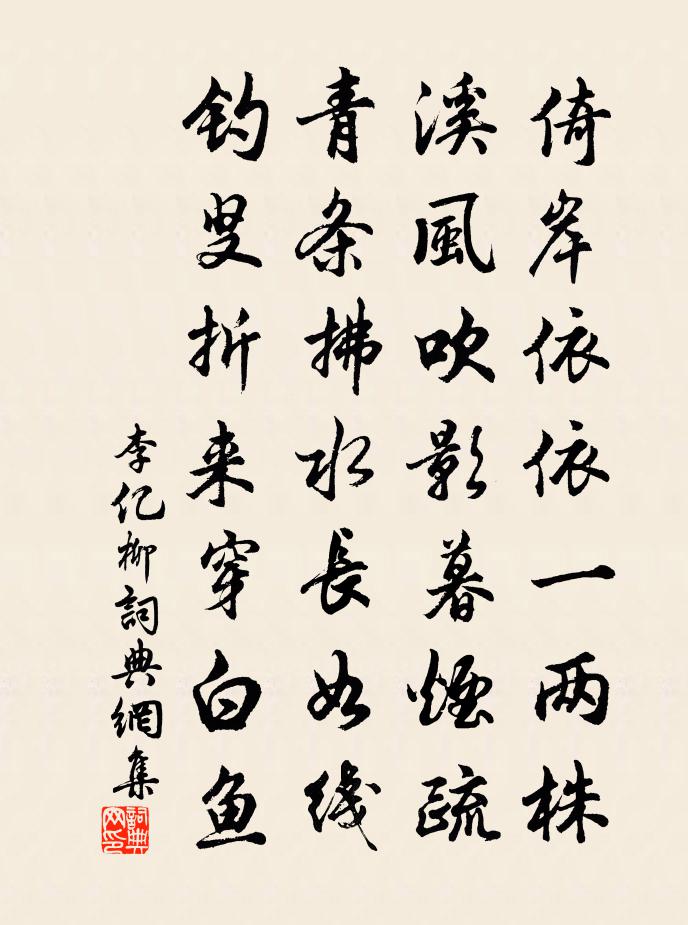 倚岸依依一两株
溪風吹影暮煙疏
青条拂水長如线
钓叟折来穿白鱼
李亿柳詞典網集
詞典
网印